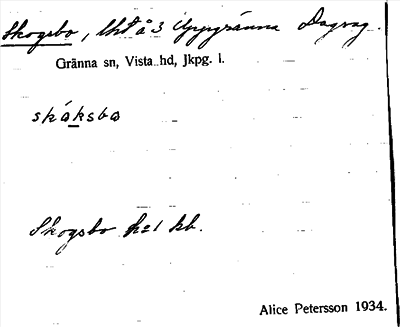 Skogsbo, lht å 3 Uppgränna Dagsv.
Gränna sn, Vista hd, Jkpg. l.
skáksbo
Skogsbo h=1 kb.
Alice Petersson 1934.